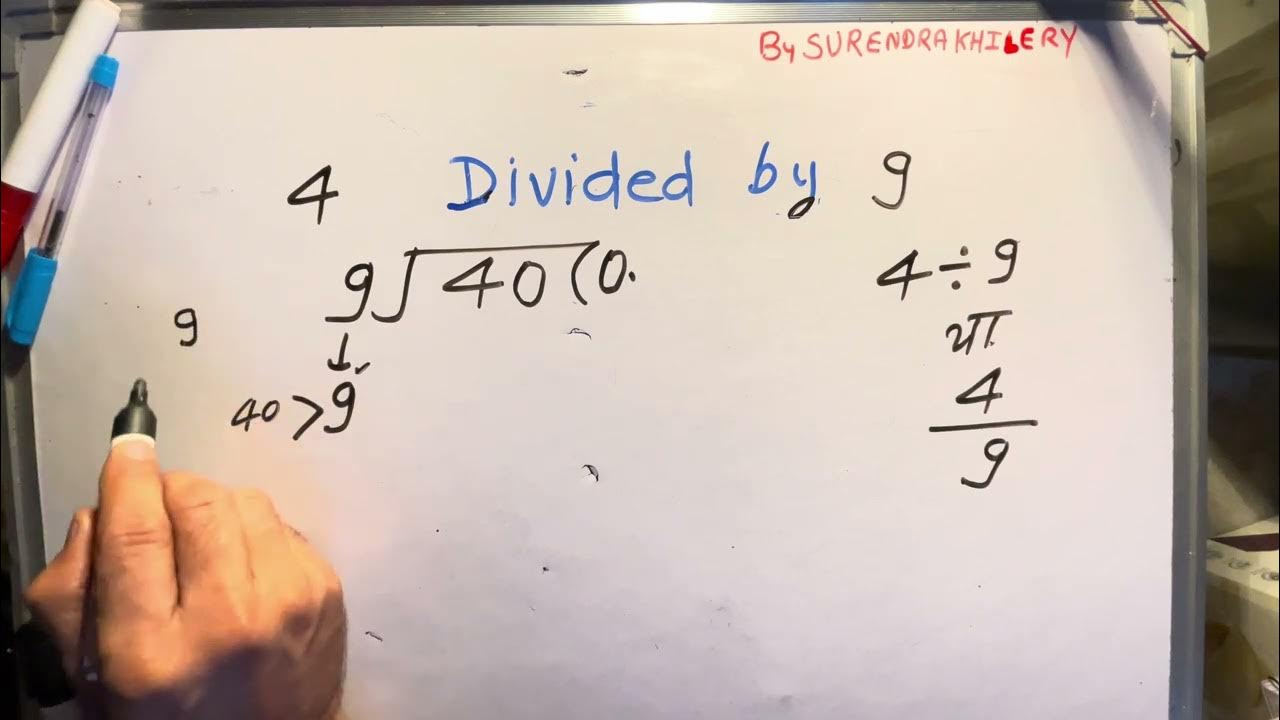 By SURENDRA KHILERY
4 Divided by 9
9)40(0.
4÷9
9
या
40>9
4
9